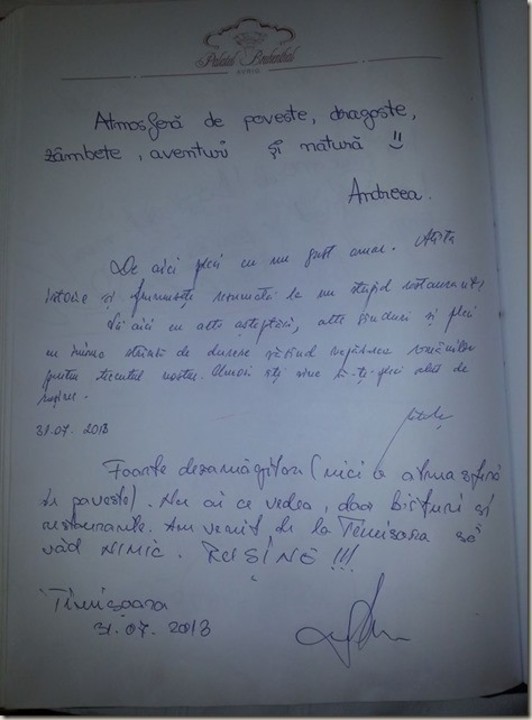 Palatul Brukenthal
AVRIG
Atmosferă de poveste, dragoste,
zâmbete, aventuri și natură
Andreea.
De aici pleci cu un gust amar. Atâta
istorie și frumusețe rezumată la un stupid restaurant!
aici cu alte așteptări, alte gânduri și pleci
cu inima de durere văzând nepăsarea românilor
pentru trecutul nostru. îți vine să-ți pleci de
rușine.
31.07. 2013
Foarte dezamăgitor (nici o atmosferă
de poveste). Nu ai ce vedea, doar birturi și
restaurante. Am venit de la Timisoara să
văd NIMIC. RUSINE !!!
Timișoara
31.07.2013